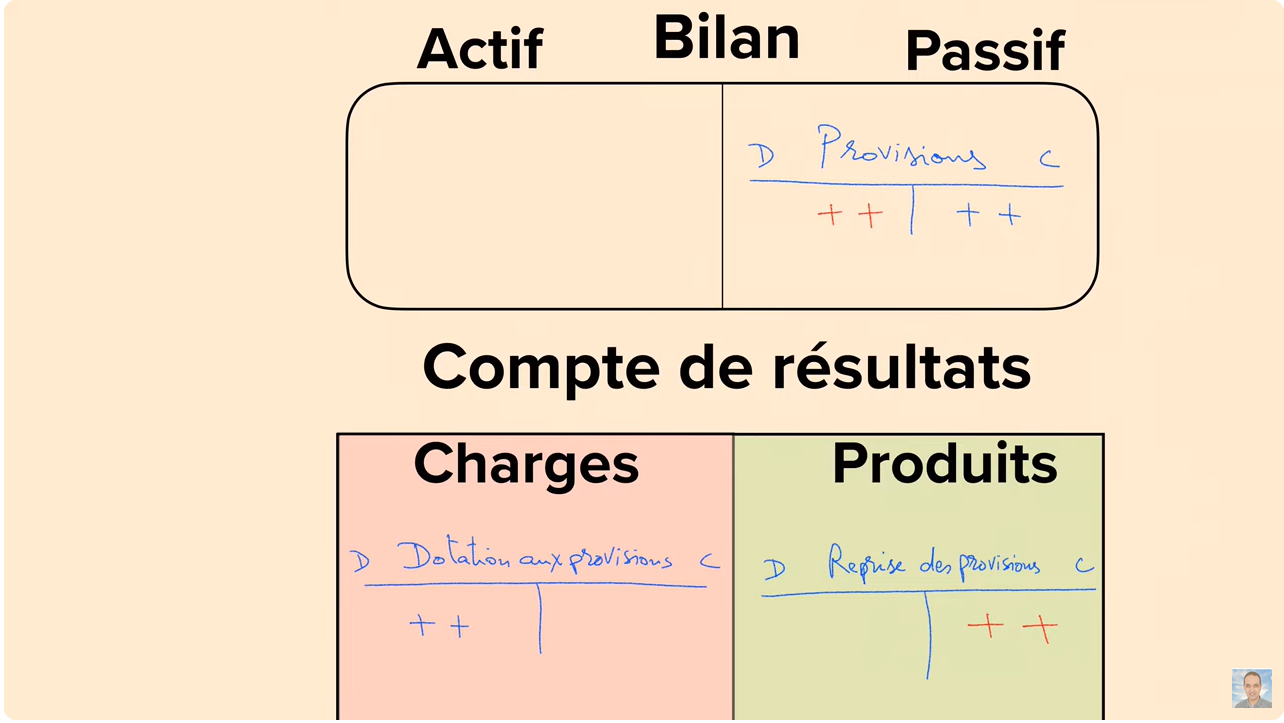 Actif Bilan Passif
D Provisions C
+ + + +
Compte de résultats
Charges Produits
D Dotation aux provisions C D Reprise des provisions C
+ + + +